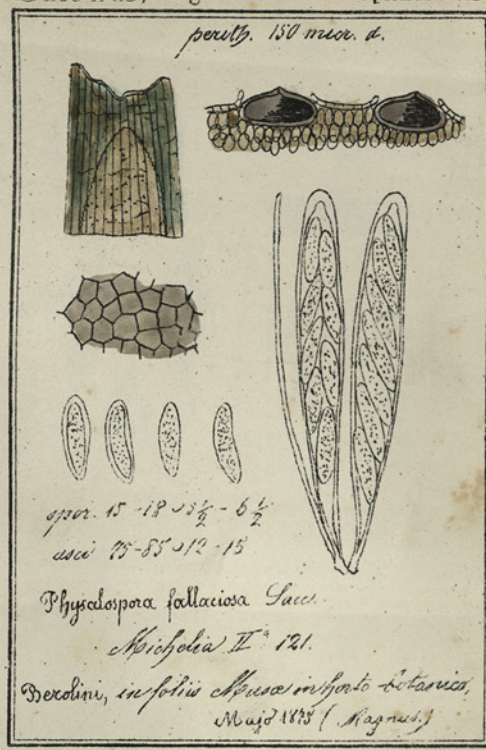 perith. 150 micr. d.
spor. 15-18 ⌣ 5½ - 6½
asci 75-85 ⌣ 12-15
Physalospora fallaciosa Sacc.
Michelia II 121.
Berolini, in foliis Musæ in horto botanico,
Majo 1875 (Magnus.)